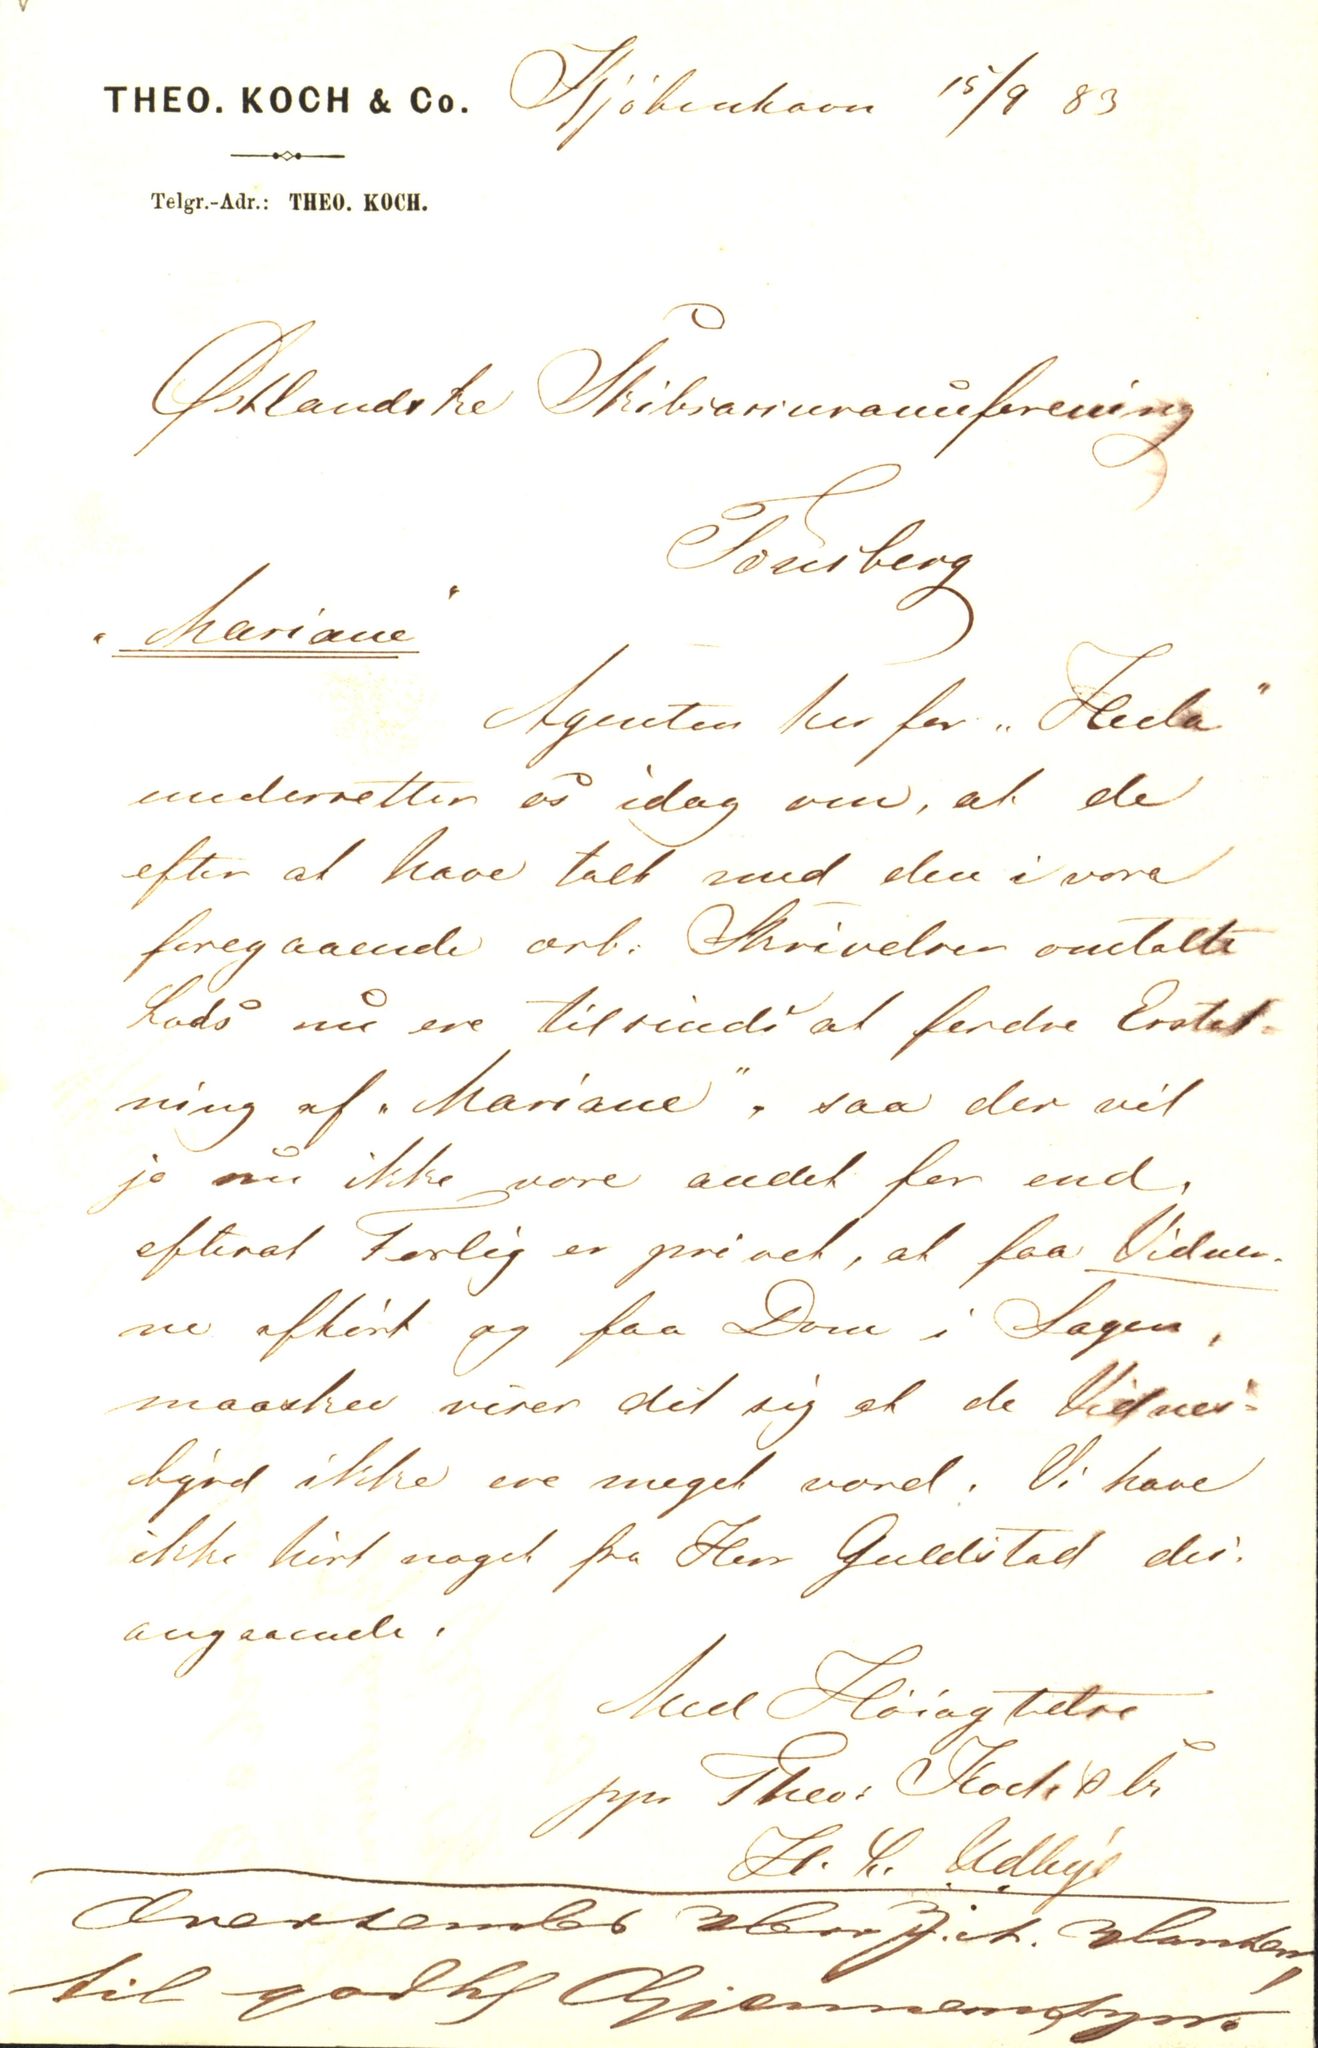 THEO. KOCH & Co.
Kjöbenhavn 15/9 83
Telgr.-Adr.: THEO. KOCH.
Østlandske Skibsassuranceforening
Tønsberg
"Mariane"
Agenten her for "Hecla"
underretter os idag om, at de
efter at have talt med den i vore
foregaaende ærb: Skrivelser omtalte
Lods nu ere tilsinds at fordre Erstat-
ning af "Mariane", saa der vil
jo nu ikke være andet for end,
efterat Forlig er prövet, at faa Vidner-
ne afhört og faa Dom i Sagen,
maaskee viser det sig at de Vidnes-
byrd ikke ere meget værd. Vi have
ikke hört noget fra Herr Guldstad des-
angaaende.
Med Höiagtelse
pp. Theo: Koch & Co
H. C. Udbye
Oversendes Herr Hansen,
til godhf Gjennemsyn.